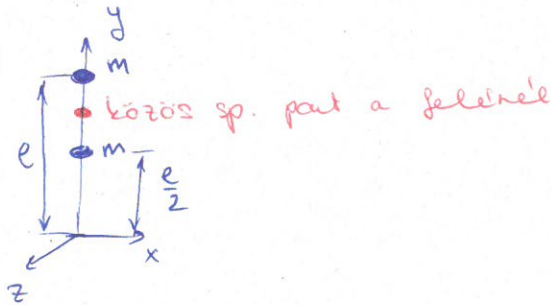 y
m
közös sp. pont a felénél
l
m
l/2
x
z